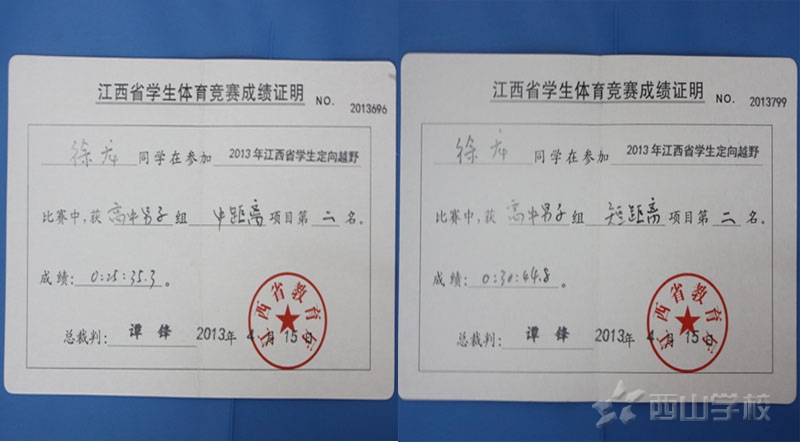 江西省学生体育竞赛成绩证明
NO. 2013696
徐 同学在参加 2013年江西省学生定向越野
比赛中,获 高中男子 组 中距离 项目第 二 名。
成绩: 0:25:35.3 。
总裁判: 谭锋 2013年 4月 15日
江西省教育厅
江西省学生体育竞赛成绩证明
NO. 2013799
徐 同学在参加 2013年江西省学生定向越野
比赛中,获 高中男子 组 短距离 项目第 二 名。
成绩: 0:30:44.8 。
总裁判: 谭锋 2013年 4月 15日
江西省教育厅
西山学校